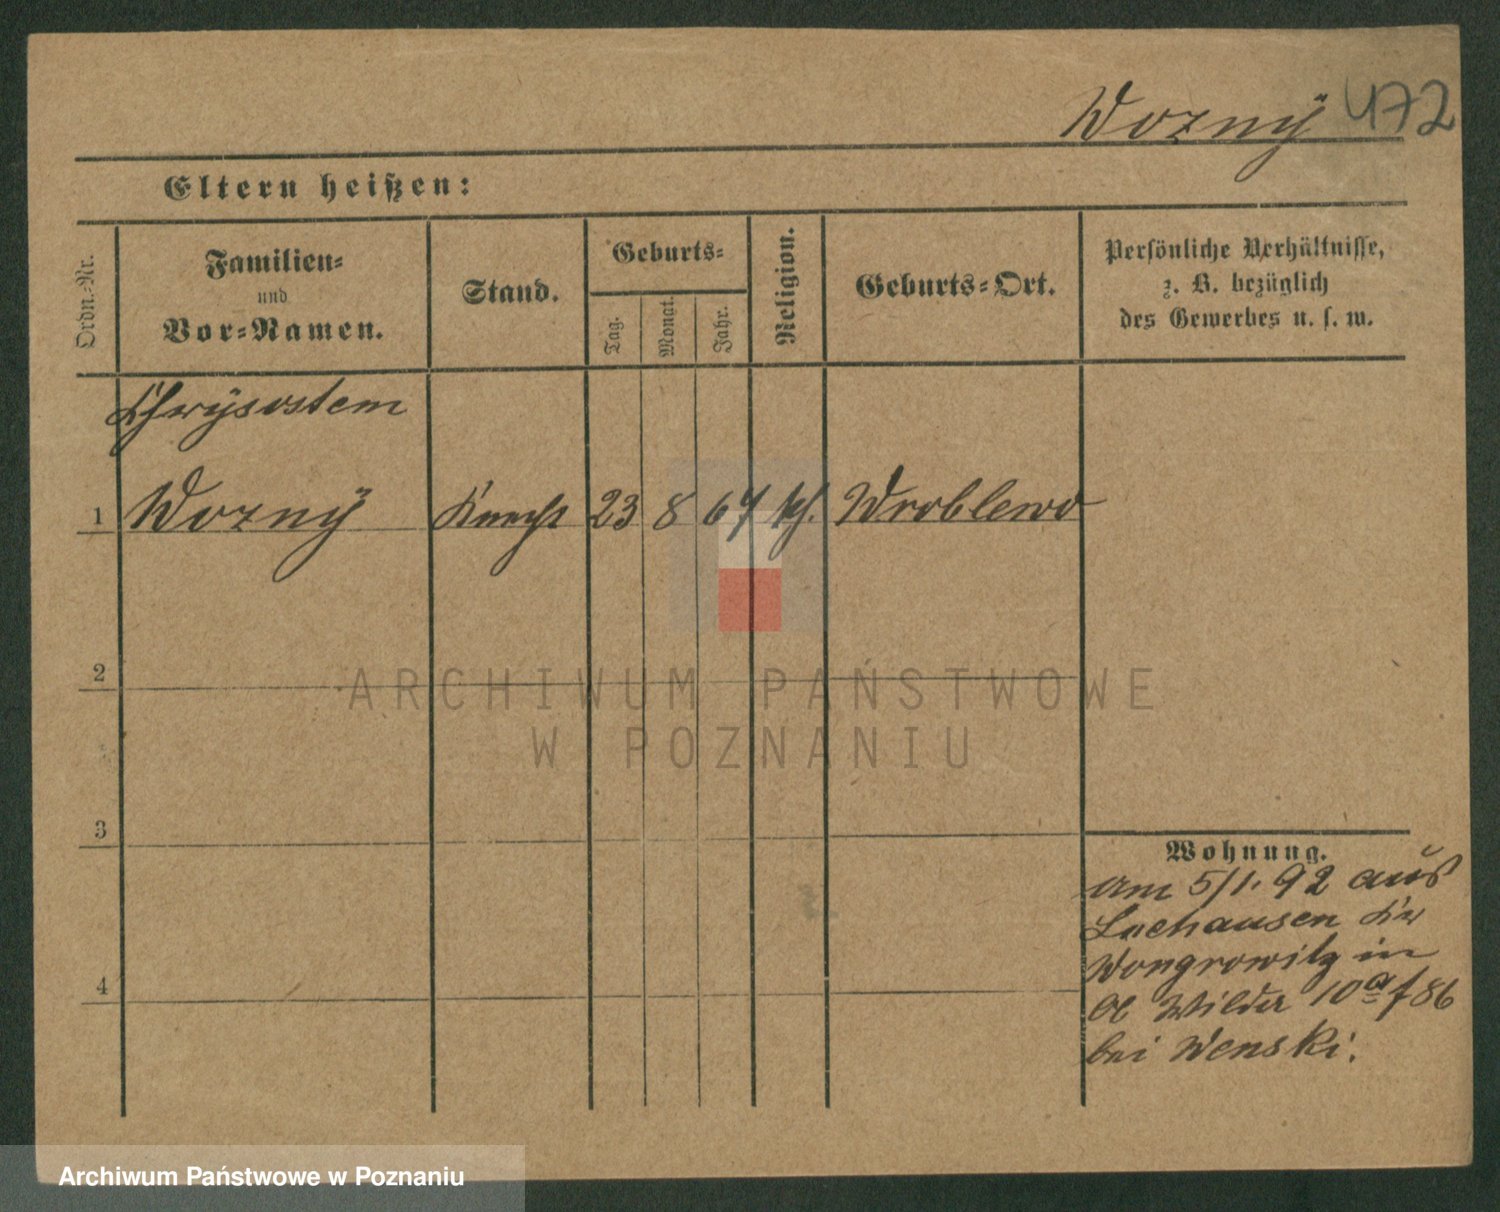 Wozný 472
Eltern heißen:
Ordn.-Nr.
Familien-
und
Vor-Namen.
Stand.
Geburts-
Tag.
Monat.
Jahr.
Religion.
Geburts-Ort.
Persönliche Verhältnisse,
z. B. bezüglich
des Gewerbes u. s. w.
Chrÿsostem
1 Woznÿ Knecht 23 8 67 kh. Wroblewo
2
ARCHIWUM PAŃSTWOWE
W POZNANIU
3
4
Wohnung.
Am 5/1. 92 aus
Lochausen Kr
Wongrowitz in
Ob Wilda 10a f 86
bei Wenski.
Archiwum Państwowe w Poznaniu